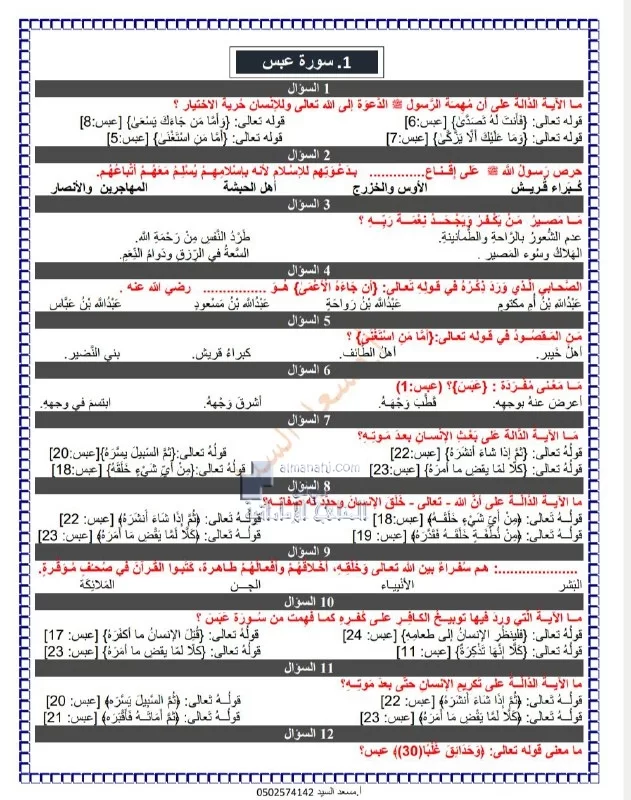 1. سورة عبس
السؤال 1
مـا الآيـة الدّالة على أن مُهِمـة الرَّسول ﷺ الدَّعوَة إلى الله تعالى وللإنْسان حُرية الاختيار ؟
قوله تعالى: {فَأَنتَ لَهُ تَصَدَّىٰ} [عبس:6] قوله تعالى: {وَأَمَّا مَن جَاءَكَ يَسْعَىٰ} [عبس:8]
قوله تعالى: {وَمَا عَلَيْكَ أَلَّا يَزَّكَّىٰ} [عبس:7] قوله تعالى: {أَمَّا مَنِ اسْتَغْنَىٰ} [عبس:5]
السؤال 2
حرص رَسولُ الله ﷺ عَلى إقْنـاع.............. بـدَعْوَتِهِم للإسْلام لأنه بإسْلامِهِـمْ يُسْلِـمُ مَعَهُـمْ أَتْباعُهُـم.
كُـبَراء قُريــش الأوس والخزرج أهل الحبشة المهاجرين والأنصار
السؤال 3
مَـا مَصيـرُ مَـنْ يَكْـفُـرُ ويَجْـحَـدُ نِعْمَـــةَ رَبِّــهِ ؟
عدم الشُّعورُ بالرَّاحةِ والطُّمأنينةِ. طَرْدُ النَّفْسِ مِنْ رَحْمَةِ الله.
الهَلاكُ وسُوء المَصير . السَّعةُ في الرِّزقِ ودَوامُ النِّعَمِ.
السؤال 4
الصَّحابي الَّـذي وَرَدَ ذِكْـرُهُ في قـولِهِ تَعالى: {أَن جَاءَهُ الْأَعْمَىٰ} هُـوَ ................. رضي الله عنه .
عَبْدُالله بْنُ أم مكتوم عَبْدُالله بْنُ رَوَاحَة عَبْدُالله بْنُ مَسْعودٍ عَبْدُالله بْنُ عَبَّاس
السؤال 5
مَـنِ المَـقصُــودُ في قـوله تعـالى:{أَمَّا مَنِ اسْتَغْنَىٰ} ؟
أهلُ خَيبر. أهلُ الطَّائف. كبراءُ قريش. بني النَّضير.
السؤال 6
مَـا مَعْنى مُفْـرَدَة : {عَبَسَ}؟ (عبس:1)
أعرَضَ عنهُ بوجهِهِ. قَطَّبَ وَجْهَـهُ. أشرقَ وَجْهُهُ. ابتسَمَ في وجههِ.
السؤال 7
مَـا الآيةُ الدَّالة على بَعْثِ الإنْسان بعدَ مَـوتِـهِ؟
قولُهُ تَعالى: {ثُمَّ إِذَا شَاءَ أَنشَرَهُ} [عبس:22] قولُهُ تعالى: {ثُمَّ السَّبِيلَ يَسَّرَهُ}[عبس:20]
قولُهُ تعالى: {كَلَّا لَمَّا يَقْضِ مَا أَمَرَهُ} [عبس:23] قولُهُ تعالى:{مِنْ أَيِّ شَيْءٍ خَلَقَهُ} [عبس:18]
almanahj.com
السؤال 8
ما الآيـة الدَّالَّــة على أنَّ الله - تعالى - خَلَقَ الإنسان وحدَّد له صِفَاتِـهِ؟
قولُــهُ تَعالى: {مِنْ أَيِّ شَيْءٍ خَلَقَـهُ} [عبس:18] قولُــهُ تَعالى: {ثُمَّ إِذَا شَاءَ أَنْشَرَهُ} [عبس: 22]
قولُــهُ تَعالى: {مِنْ نُطْفَـةٍ خَلَقَـهُ فَقَدَّرَهُ} [عبس: 19] قولُــهُ تَعالى: {كَلَّا لَمَّا يَقْضِ مَا أَمَرَهُ} [عبس: 23]
السؤال 9
....................: هم سُفراءُ بين الله تعالى وَخَلْقِهِ، أخلاقُهُمْ وأفعالُهُمْ طـاهرة، كَتَبُوا القُرآنَ في صُحُفٍ مُـوَقَّـرَةٍ.
البَشر الأنبيـاء الجــن المَلائِكَة
السؤال 10
مـا الآيـــة الَّتي وردَ فيها توبيـخُ الكافـرِ علـى كُفـرِهِ كمـا فَهِمـتَ من سُـورَة عَبَسَ ؟
قولُهُ تعالى: {فلينظُرِ الإنسانُ إلى طَعامِهِ} [عبس: 24] قولُهُ تعالى: {قُتِلَ الإنسانُ ما أكفَرَهُ} [عبس: 17]
قولُهُ تعالى: {كَلَّا إنَّها تَذكِرَةٌ} [عبس: 11] قولُهُ تعالى: {كَلَّا لمَّا يقضِ ما أمرَهُ} [عبس: 23]
السؤال 11
ما الآيــة الدَّالَّــةُ على تكريمِ الإنسانِ حتَّى بعدَ مَـوتِـهِ؟
قولُــهُ تَعالى: {ثُمَّ إِذَا شَاءَ أَنْشَرَهُ} [عبس: 22] قولُــهُ تَعالى: {ثُمَّ السَّبِيلَ يَسَّرَهُ} [عبس: 20]
قولُــهُ تَعالى: {كَلَّا لَمَّا يَقْضِ مَا أَمَرَهُ} [عبس: 23] قولُــهُ تَعالى: {ثُمَّ أَمَاتَـهُ فَأَقْبَرَه} [عبس: 21]
السؤال 12
ما معنى قوله تعالى: {وَحَدَائِقَ غُلْبًا(30)} عبس؟
أ.مسعد السيد 0502574142